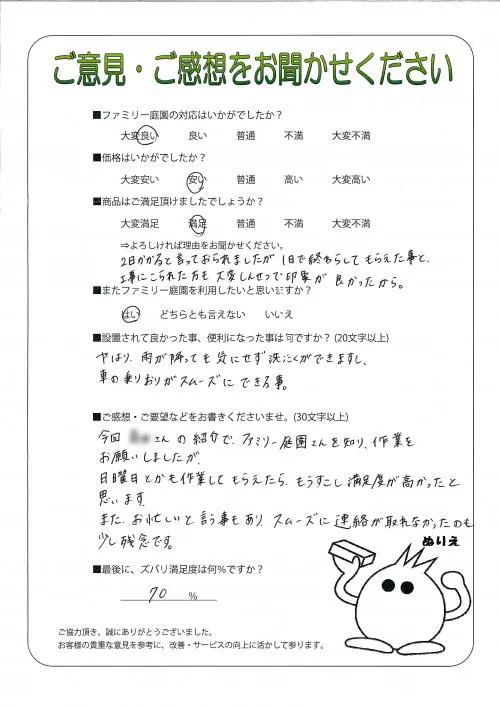 ご意見・ご感想をお聞かせください
■ファミリー庭園の対応はいかがでしたか？
大変良い 良い 普通 不満 大変不満
■価格はいかがでしたか？
大変安い 安い 普通 高い 大変高い
■商品はご満足頂けましたでしょうか？
大変満足 満足 普通 不満 大変不満
⇒よろしければ理由をお聞かせください。
2日かかると言っておられましたが1日で終わらしてもらえた事と、
工事にこられた方も大変しんせつで印象が良かったから。
■またファミリー庭園を利用したいと思いますか？
はい どちらとも言えない いいえ
■設置されて良かった事、便利になった事は何ですか？(20文字以上)
やはり、雨が降っても気にせず洗たくができますし、
車の乗りおりがスムーズにできる事。
■ご感想・ご要望などをお書きくださいませ。(30文字以上)
今回 さんの紹介で、ファミリー庭園さんを知り、作業を
お願いしましたが、
日曜日とかも作業してもらえたら、もうすこし満足度が高かったと
思います。
また、お忙しいと言う事もあり、スムーズに連絡が取れなかったのも
少し残念です。
ぬりえ
■最後に、ズバリ満足度は何％ですか？
70 ％
ご協力頂き、誠にありがとうございました。
お客様の貴重な意見を参考に、改善・サービスの向上に活かして参ります。